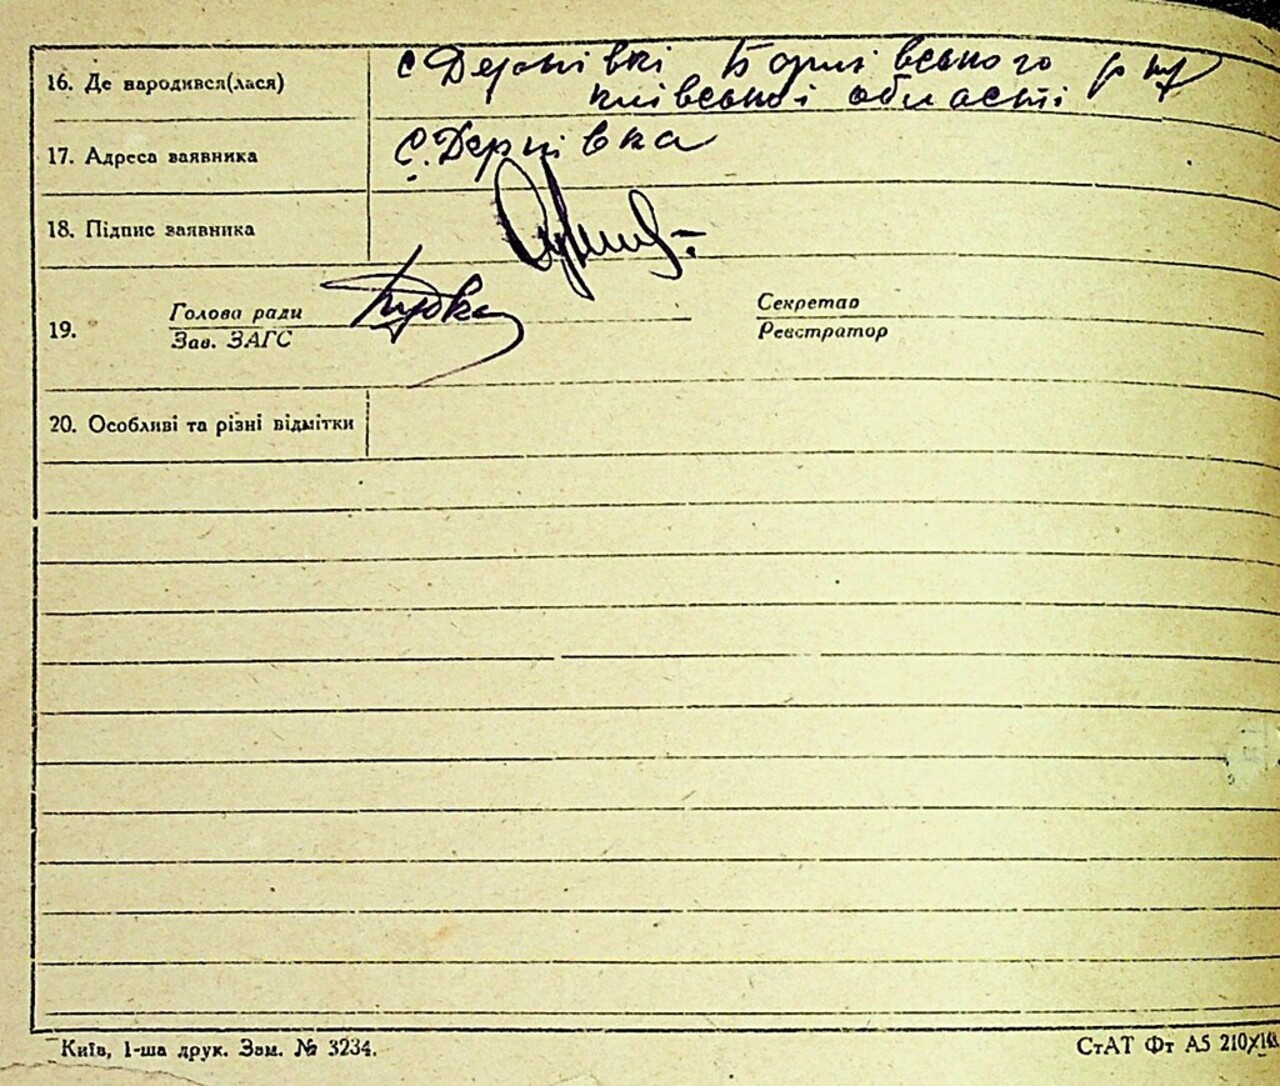 16. Де народився(лася) с Дернівкі Баришівського р ну
київської області
17. Адреса заявника с. Дернівка
18. Підпис заявника
19. Голова ради
Зав. ЗАГС
Секретар
Реєстратор
20. Особливі та різні відмітки
Київ, 1-ша друк. Зам. № 3234.
СтАТ Фт А5 210X148